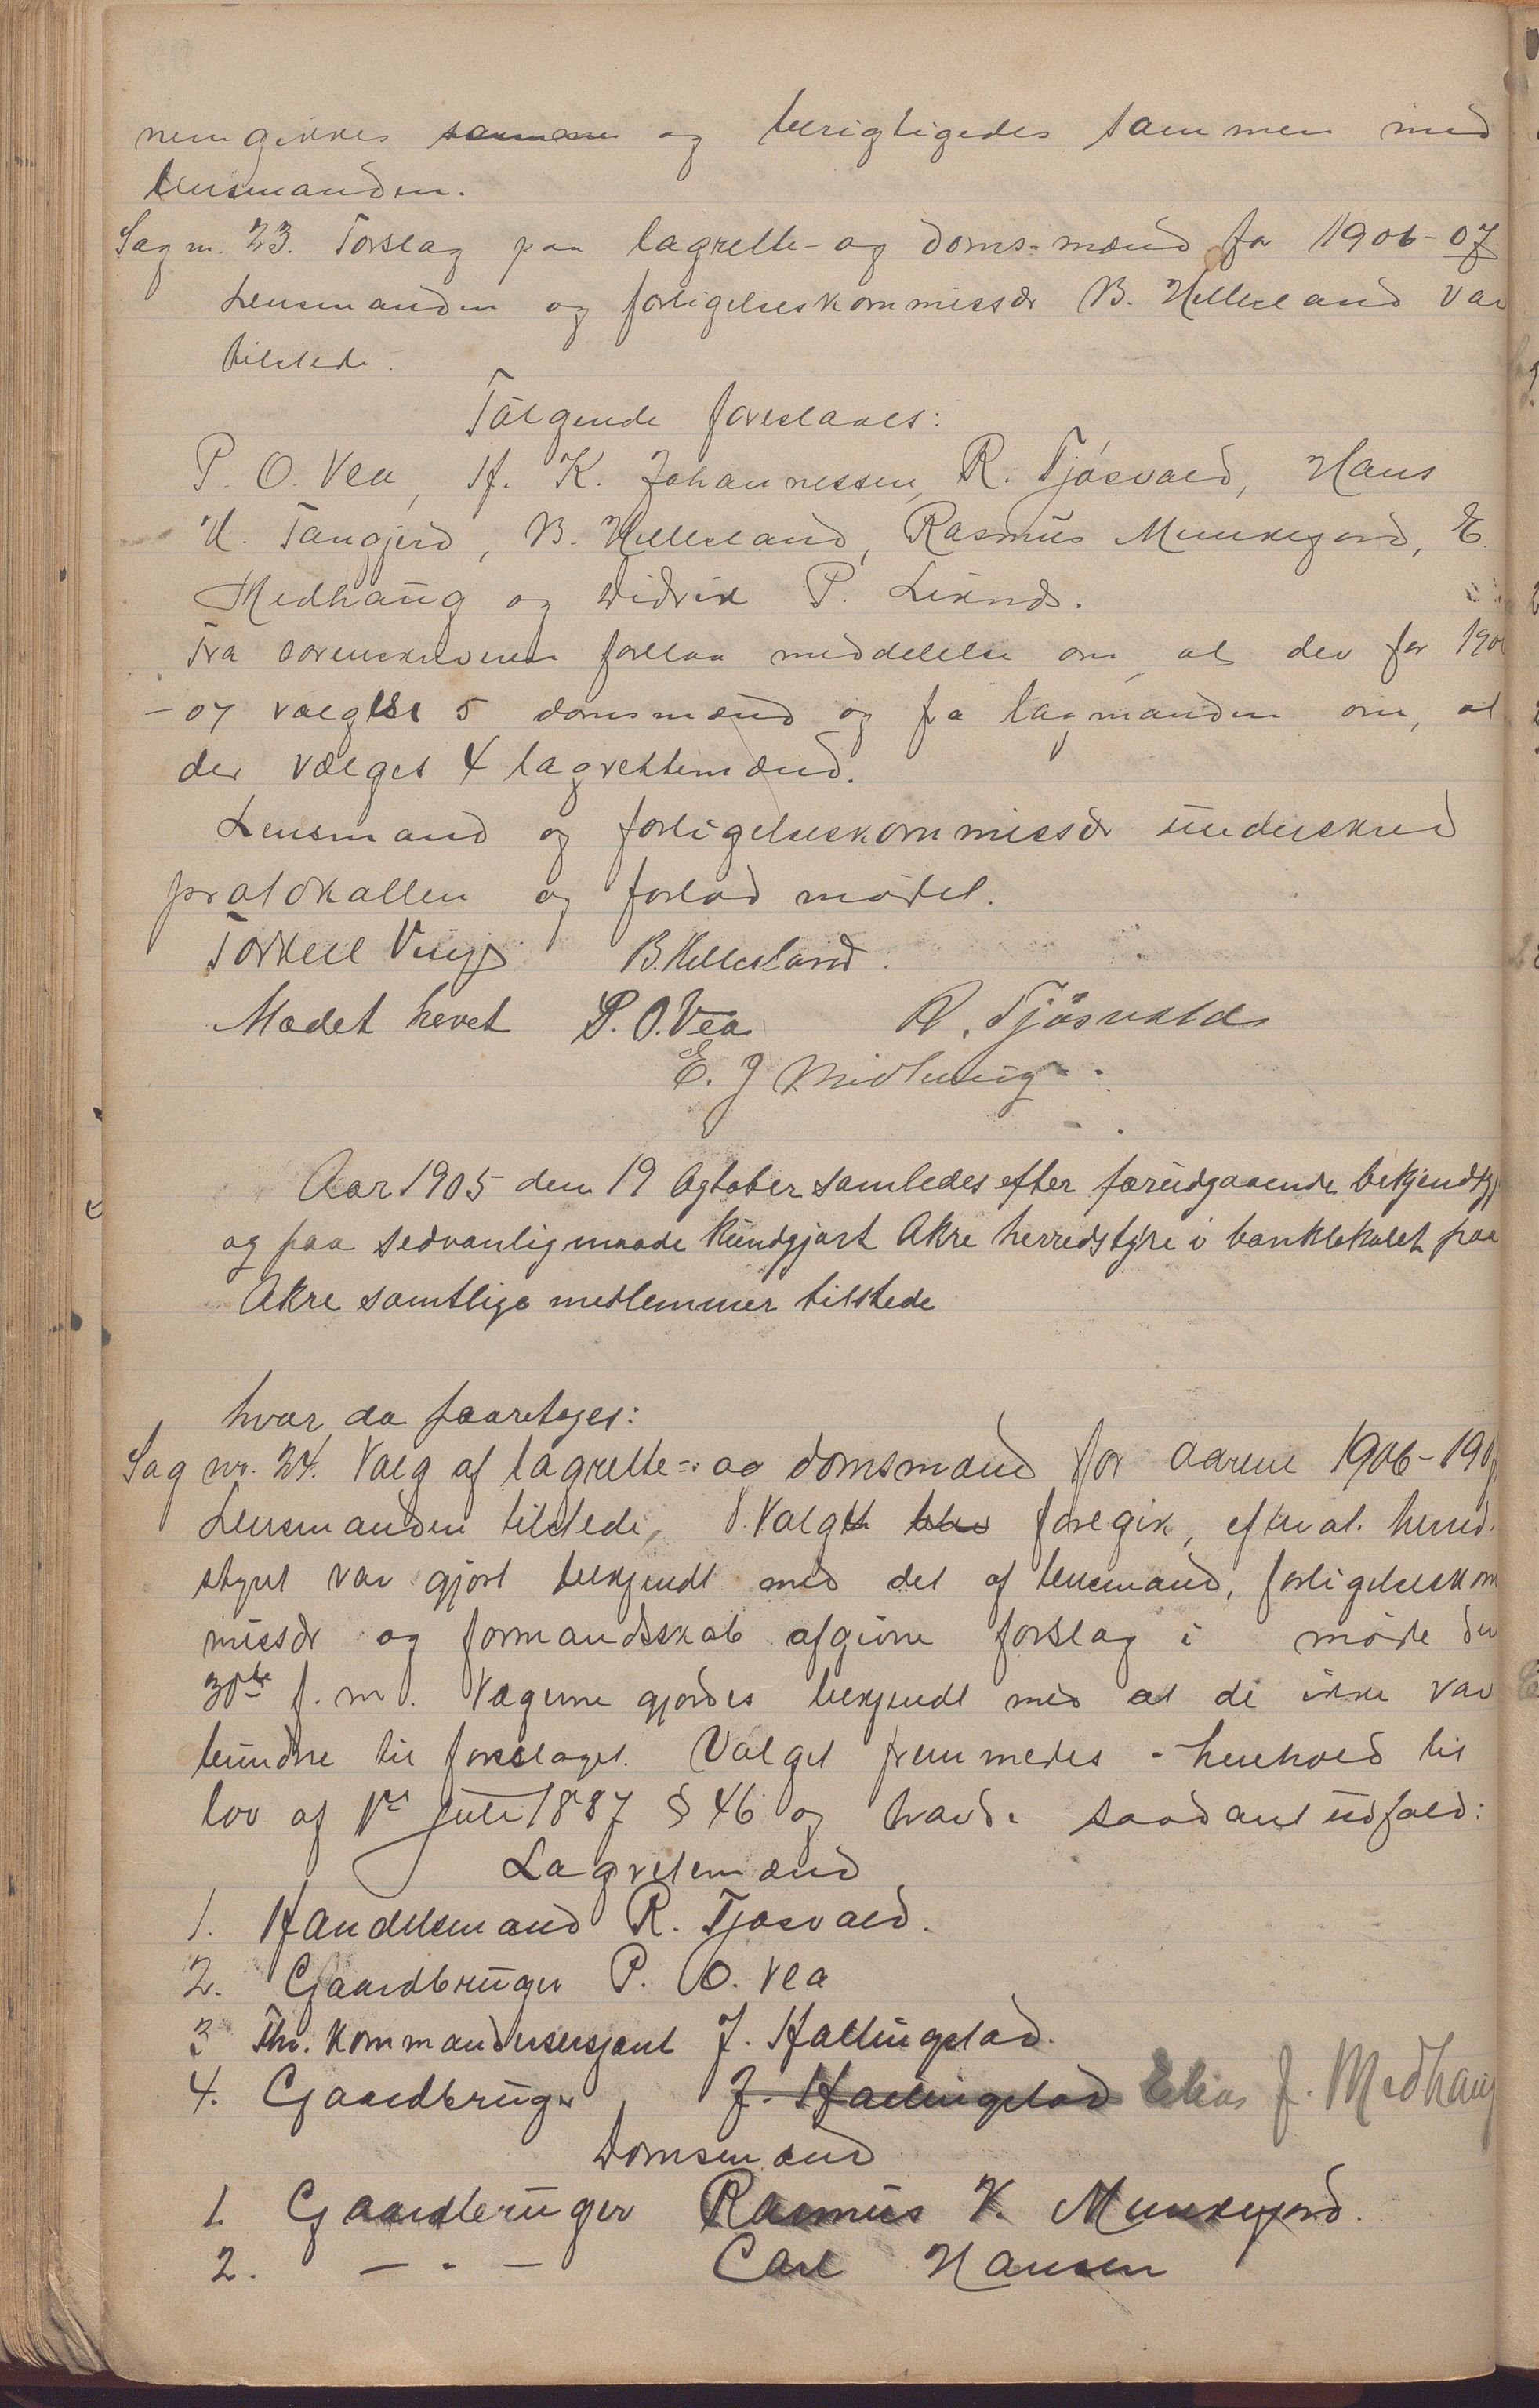 nemgikkes samme og berigtigedes sammen med
lensmanden.
Sag nr. 23. Forslag paa lagrette- og doms-mænd for 1906-07
Lensmanden og forligelseskommissær B. Hellesland var
tilstede.
Følgende foreslaaes:
P. O. Vea, H. K. Johannessen, R. Tjøsvold, Hans
H. Tangjerd, B. Hellesland, Rasmus Munkejord, E.
Medhaug og Didrik P. Liknes.
Fra sorenskriveren forelaa meddelelse om, at der for 190
- 07 vælges 5 domsmænd og fra lagmanden om, at
der vælges 4 lagrettemænd.
Lensmand og forligelseskommissær underskred
protokollen og forlod mødet.
Torkell Vinje B. Hellesland.
Mødet hevet P. O. Vea R. Tjøsvold
E. J Midhaug
Aar 1905 den 19 Ogtober samledes efter forudgaaende bekjendtgj
og paa sedvanlig maade kundgjort Akre herredstyre i banklokalet paa
Akre samtlige medlemmer tilstede
hvor da foaretages:
Sag nr. 24. Valg af lagrette- og domsmænd for aarene 1906-190
Lensmanden tilstede, Valget blev foregik, efter at herred-
styret var gjort bekjendt med det af lensmand, forligelseskom
missær og formandsskab afgivne forslag i møde den
30te f. m. Vælgerne gjordes bekjendt med at de ikke var
bundne til forslaget. Valget fremmedes i henhold til
lov af 1ste Juli 1887 § 46 og havde saadant udfald:
Lagretemænd
1. Handelsmand R. Tjøsvold.
2. Gaardbruger P. O. Vea
3 Fhv. Kommandersersjant J. Hallingstad.
4. Gaardbruger J. Hallingstad Elias J. Medhaug
Domsmænd
1. Gaardbruger Rasmus K. Munkejord.
2. - " - Carl Hansen